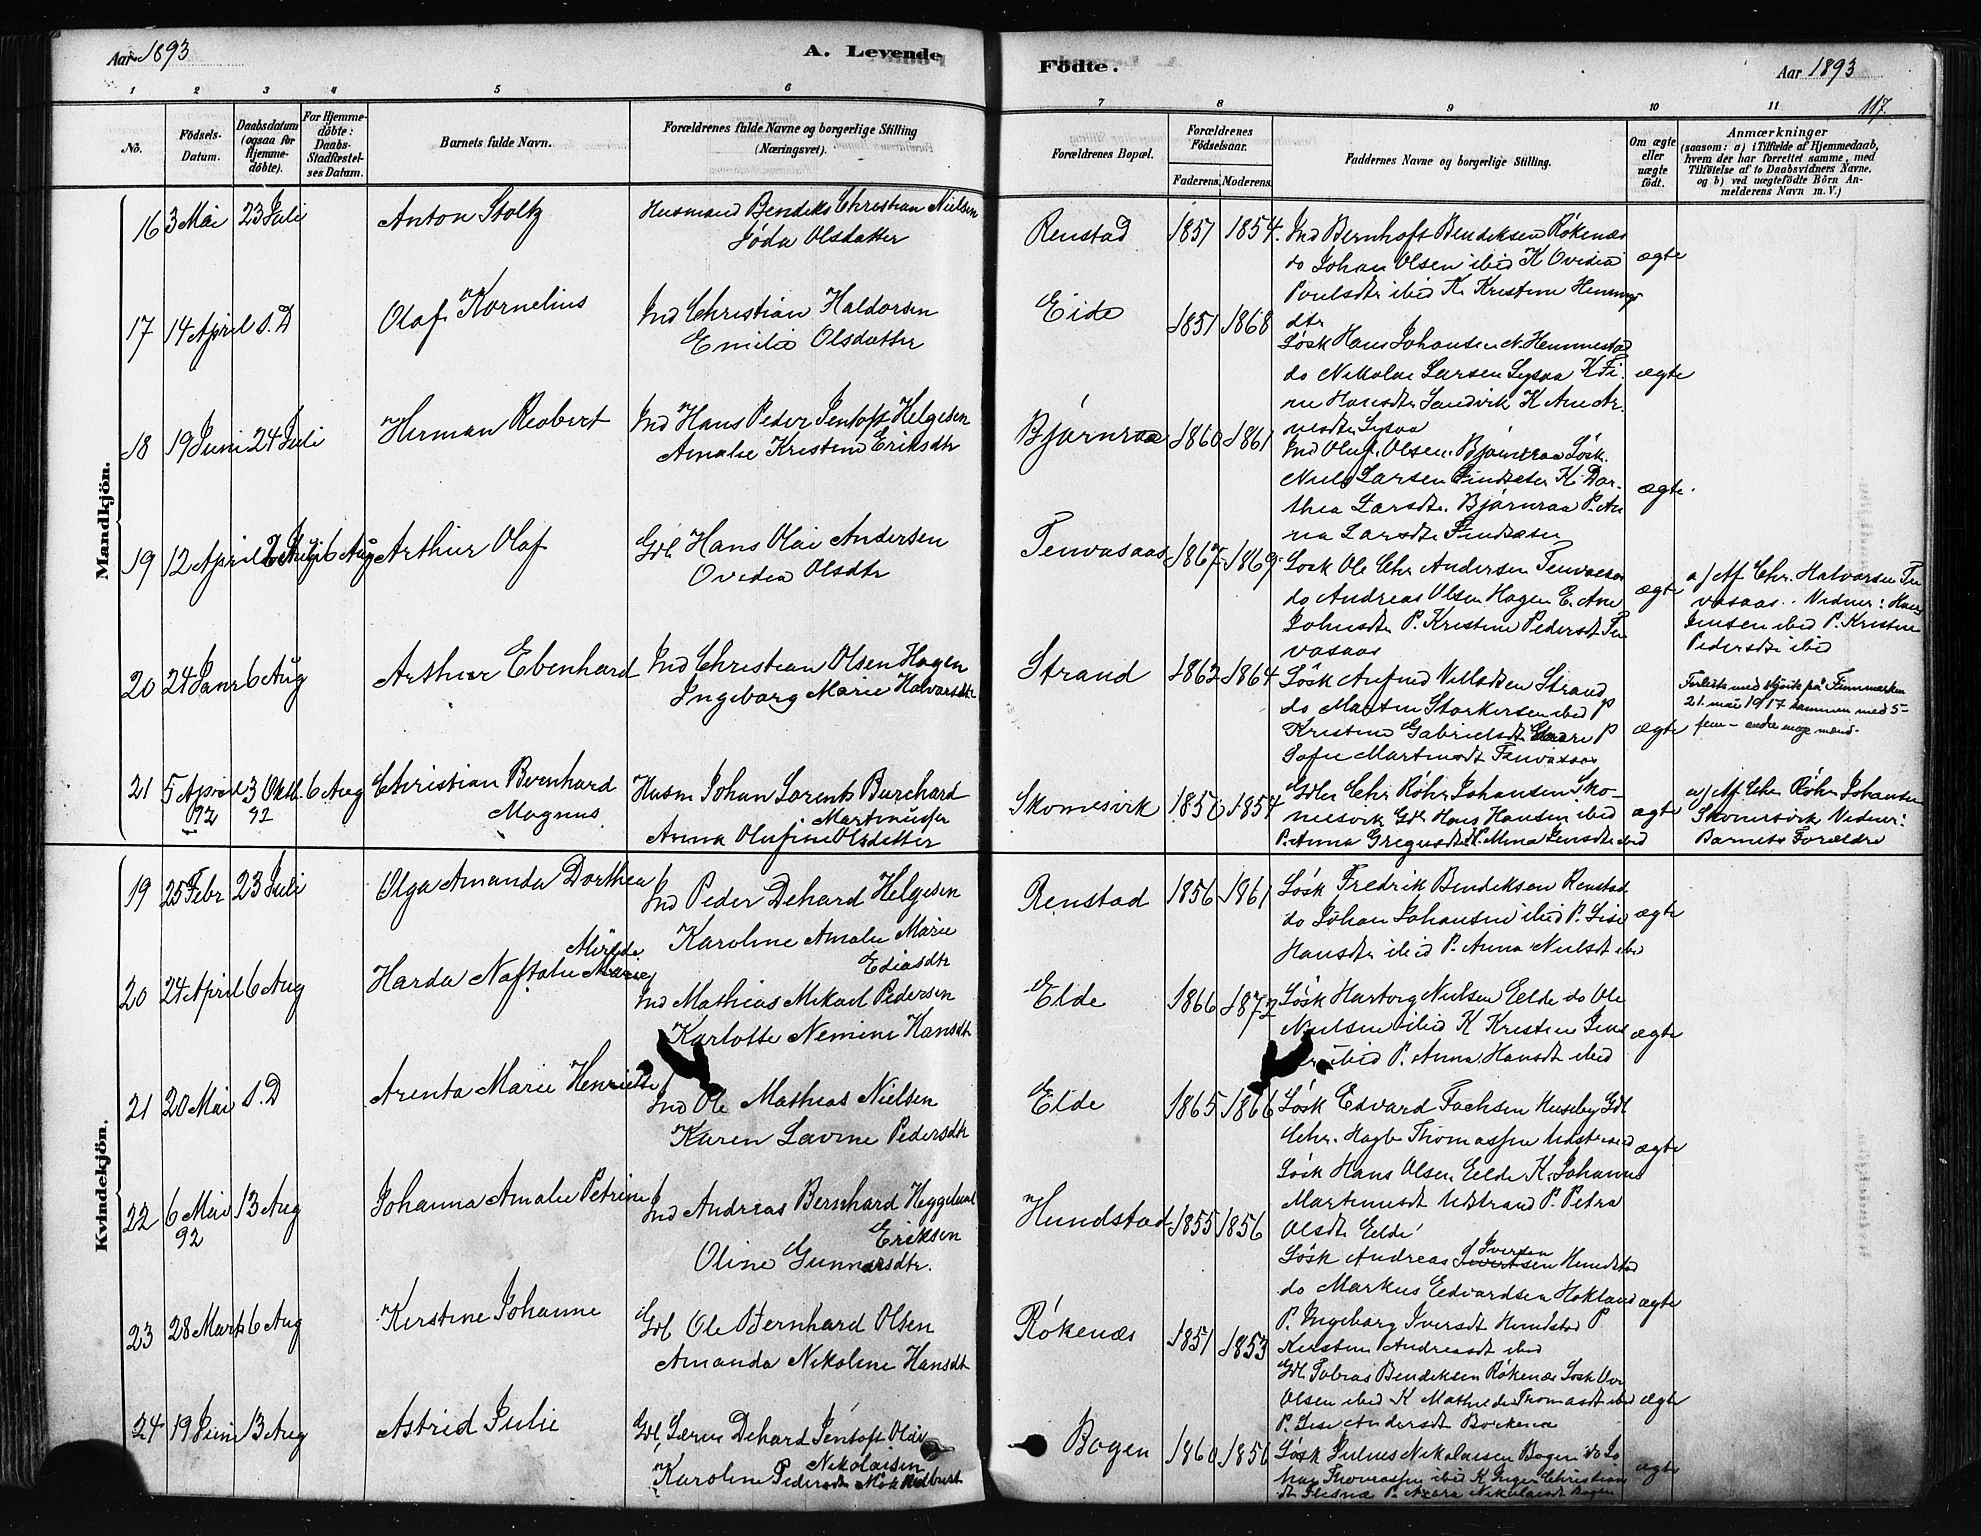 Aar 1893
A. Levende
Födte.
Aar 1893
117.
1 2 3 4 5 6 7 8 9 10 11
No.
Födsels-
Datum.
Daabsdatum
(ogsaa for
Hjemme-
döbte).
For Hjemme-
döbte:
Daabs-
Stadfæstel-
ses Datum.
Barnets fulde Navn.
Forældrenes fulde Navne og borgerlige Stilling
(Næringsvei).
Forældrenes Bopæl.
Forældrenes
Födselsaar.
Faderens. Moderens.
Faddernes Navne og borgerlige Stilling.
Om ægte
eller
uægte
födt.
Anmærkninger
(saasom: a) i Tilfælde af Hjemmedaab,
hvem der har forrettet samme, med
Tilföielse af to Daabsvidners Navne.
og b) ved uægtefödte Börn An-
melderens Navn m. V.)
Mandkjön.
16 3 Mai 23 Juli
Anton Stoltz
Husmand Bendiks Christian Nielsen
Jóda Olsdatter
Renstad 1857 1854
Ind Bernhoft Bendiksen Rökenæs
do Johan Olsen ibid K Ovidia
Poulsdtr ibid K. Kristine Hennings
dtr
ægte
17 14 April S.D
Olaf Kornelius
Ind Christian Haldorsen
Emilie Olsdatter
Eide 1851 1868
Lösk Hans Johansen N. Hemmestad
do Nikolai Larsen Lysaa K Fi-
ne Hansdtr Sandvik K Ane Ar-
nesdtr Lysaa
ægte
18 19 Juni 24 Juli
Herman Robert
Ind Hans Peder Jentoft Helgesen
Amalie Kristine Eriksdtr
Bjørnraa 1860 1861
Ind Oluf Olsen Bjørnraa Lösk.
Niels Larsen Findsæter K. Dor-
thea Larsdtr. Bjørnraa P. An-
na Larsdtr Findsæter
ægte.
19 12 April 6 Aug
Arthur Olaf
Gdl Hans Olai Andersen
Ovidia Olsdtr
Tenvasaas 1867 1869
Lösk Ole Chr Andersen Tenvasaas
do Andreas Olsen Hagen E. Ane
Johnsdtr P. Kristine Pedersdt Ten
vasaas
ægte
a) Af Chr. Halvorsen Ten
vasaas. Vidner: Hans
Jensen ibid P. Kristine
Pedersdtr ibid
20 24 Janr 6 Aug
Arthur Ebenhard
Ind Christian Olsen Hagen
Ingeborg Marie Halvorsdtr.
Strand 1862 1864
Lösk Strand
do Martin Storkersen ibid P
Kristine Gabrielsdt P
Sofie Martinsdt Tenvasaas
ægte
Forlist med skjøite på Finnmarken
21. mai 1917 sammen med 5-
fem- andre unge mænd.
21 5 April 92 3 Oktb. 92 6 Aug
Christian Bernhard
Magnus
Husm Johan Lorents Burchard
Martinussen
Anna Olufine Olsdatter
Skomesvik 1850 1854
Gdlr Chr Röhr Johansen Sko-
mesvik Gdl Hans Hansen ibid
P. Anna Gregusdtr P. Mina Jensdtr ibid
ægte
a) Af Chr Röhr Johansen
Skomesvik Vidner:
Barnets Forældre
Kvindekjön.
19 25 Febr 23 Juli
Olga Amanda Dorthea
Ind Peder Dehard Helgesen
Karoline Amalie Marie
Eliasdtr
Renstad 1856 1861
Lösk Fredrik Bendiksen Renstad
do Johan Johansen ibid P. Lise
Hansdtr ibid P. Anna Nielsdt ibid
ægte
20 24 April 6 Aug
Harda Naftalie
Ind Mathias Mikael Pedersen
Karlotte Nemine Hansdt
Elde 1866 1872
Lösk Hartvig Nielsen Elde do Ole
Nielsen ibid K Kristine Jens
ibid P. Anna Hansdt ibid
ægte
21 20 Mai S.D
Arenta Marie Henriette
Ind Ole Mathias Nielsen
Karen Lavine Pedersdt
Elde 1865 1866
Lösk Edvard Husby Gdl
Chr. Hagb Thomassen Udstrand
Lösk Hans Olsen Eelde K. Johanna
Martinusdt Udstrand P. Petra
Olsdt Eelde
ægte
22 6 Mai 92 13 Aug
Johanna Amalie Petrine
Ind Andreas Bernhard Heggelund
Eriksen
Oline Gunnarsdtr.
Hundstad 1855 1856
Lösk Andreas Iversen Hundstad
do Markus Edvardsen Hokland
P. Ingeborg Iversdt Hundstad P
Kirstine Andreasdt ibid
ægte
23 28 Marts 6 Aug
Kirstine Johanne
Gdl Ole Bernhard Olsen
Amanda Nikoline Hansdt
Rökenæs 1851 1853
Gdl Tobias Bendiksen Rökenæs Lösk
Olsen ibid K Mathilde Thomasdt ibid
P. Lise Andersdt
ægte
24 19 Juni 13 Aug
Astrid Julie
Gdl Dehard Jentoft Olai
Nikolaisen
Karoline Pedersdtr
Bogen 1860 1856
Lösk Julius Nikolaisen Bogen do Jo
han Thomassen ibid K Inger Christians
dt Flesnæs P. Nikolaisdt Bogen
ægte